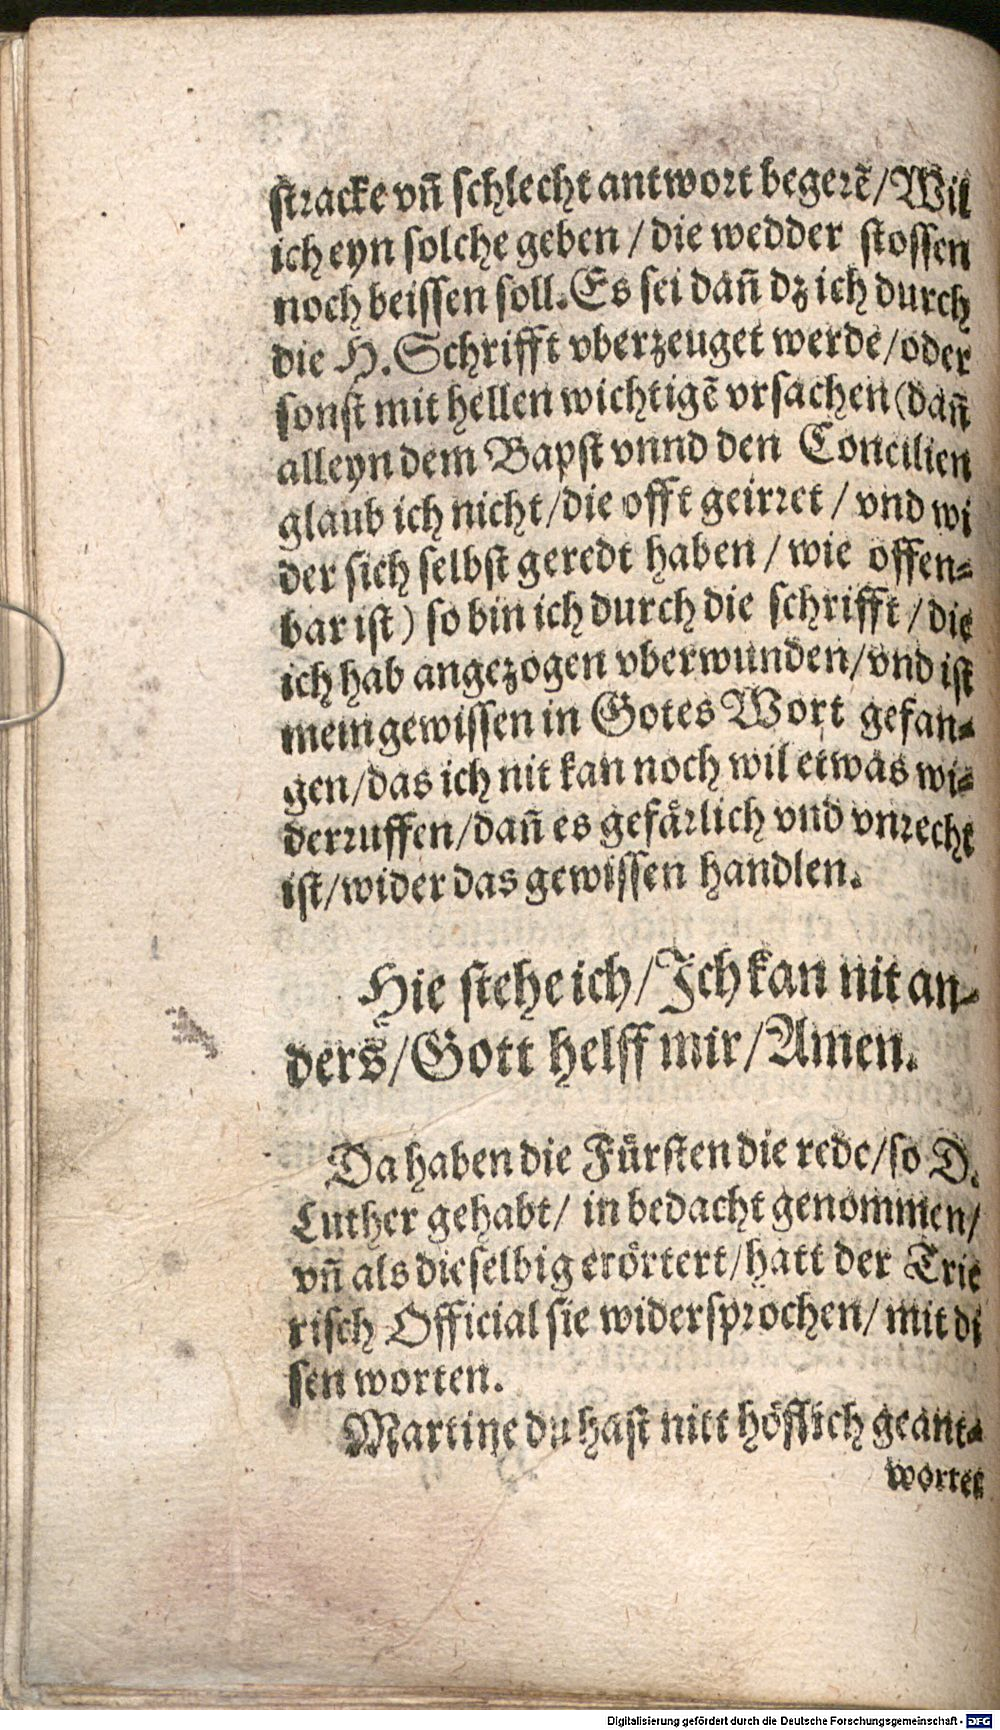 stracke vñ schlecht antwort begerẽ/Wil
ich eyn solche geben / die wedder stossen
noch beissen soll. Es sei dañ dz ich durch
die H. Schrifft vberzeuget werde/oder
sonst mit hellen wichtigẽ vrsachen (dañ
alleyn dem Bapst vnnd den Concilien
glaub ich nicht/die offt geirret / vnd wi
der sich selbst geredt haben / wie offen⸗
bar ist) so bin ich durch die schrifft / die
ich hab angezogen vberwunden/vnd ist
mein gewissen in Gotes Wort gefan⸗
gen/das ich nit kan noch wil etwas wi⸗
derruffen/dañ es gefårlich vnd vnrecht
ist/wider das gewissen handlen.
Hie stehe ich/Ich kan nit an⸗
ders/Gott helff mir/Amen.
Da haben die Fürsten die rede/so D.
Luther gehabt/ in bedacht genommen/
vñ als dieselbig erörtert/hatt der Trie
risch Official sie widersprochen/ mit di
sen worten.
Martine du hast nitt höflich geant⸗
wortet
Digitalisierung gefördert durch die Deutsche Forschungsgemeinschaft - DFG